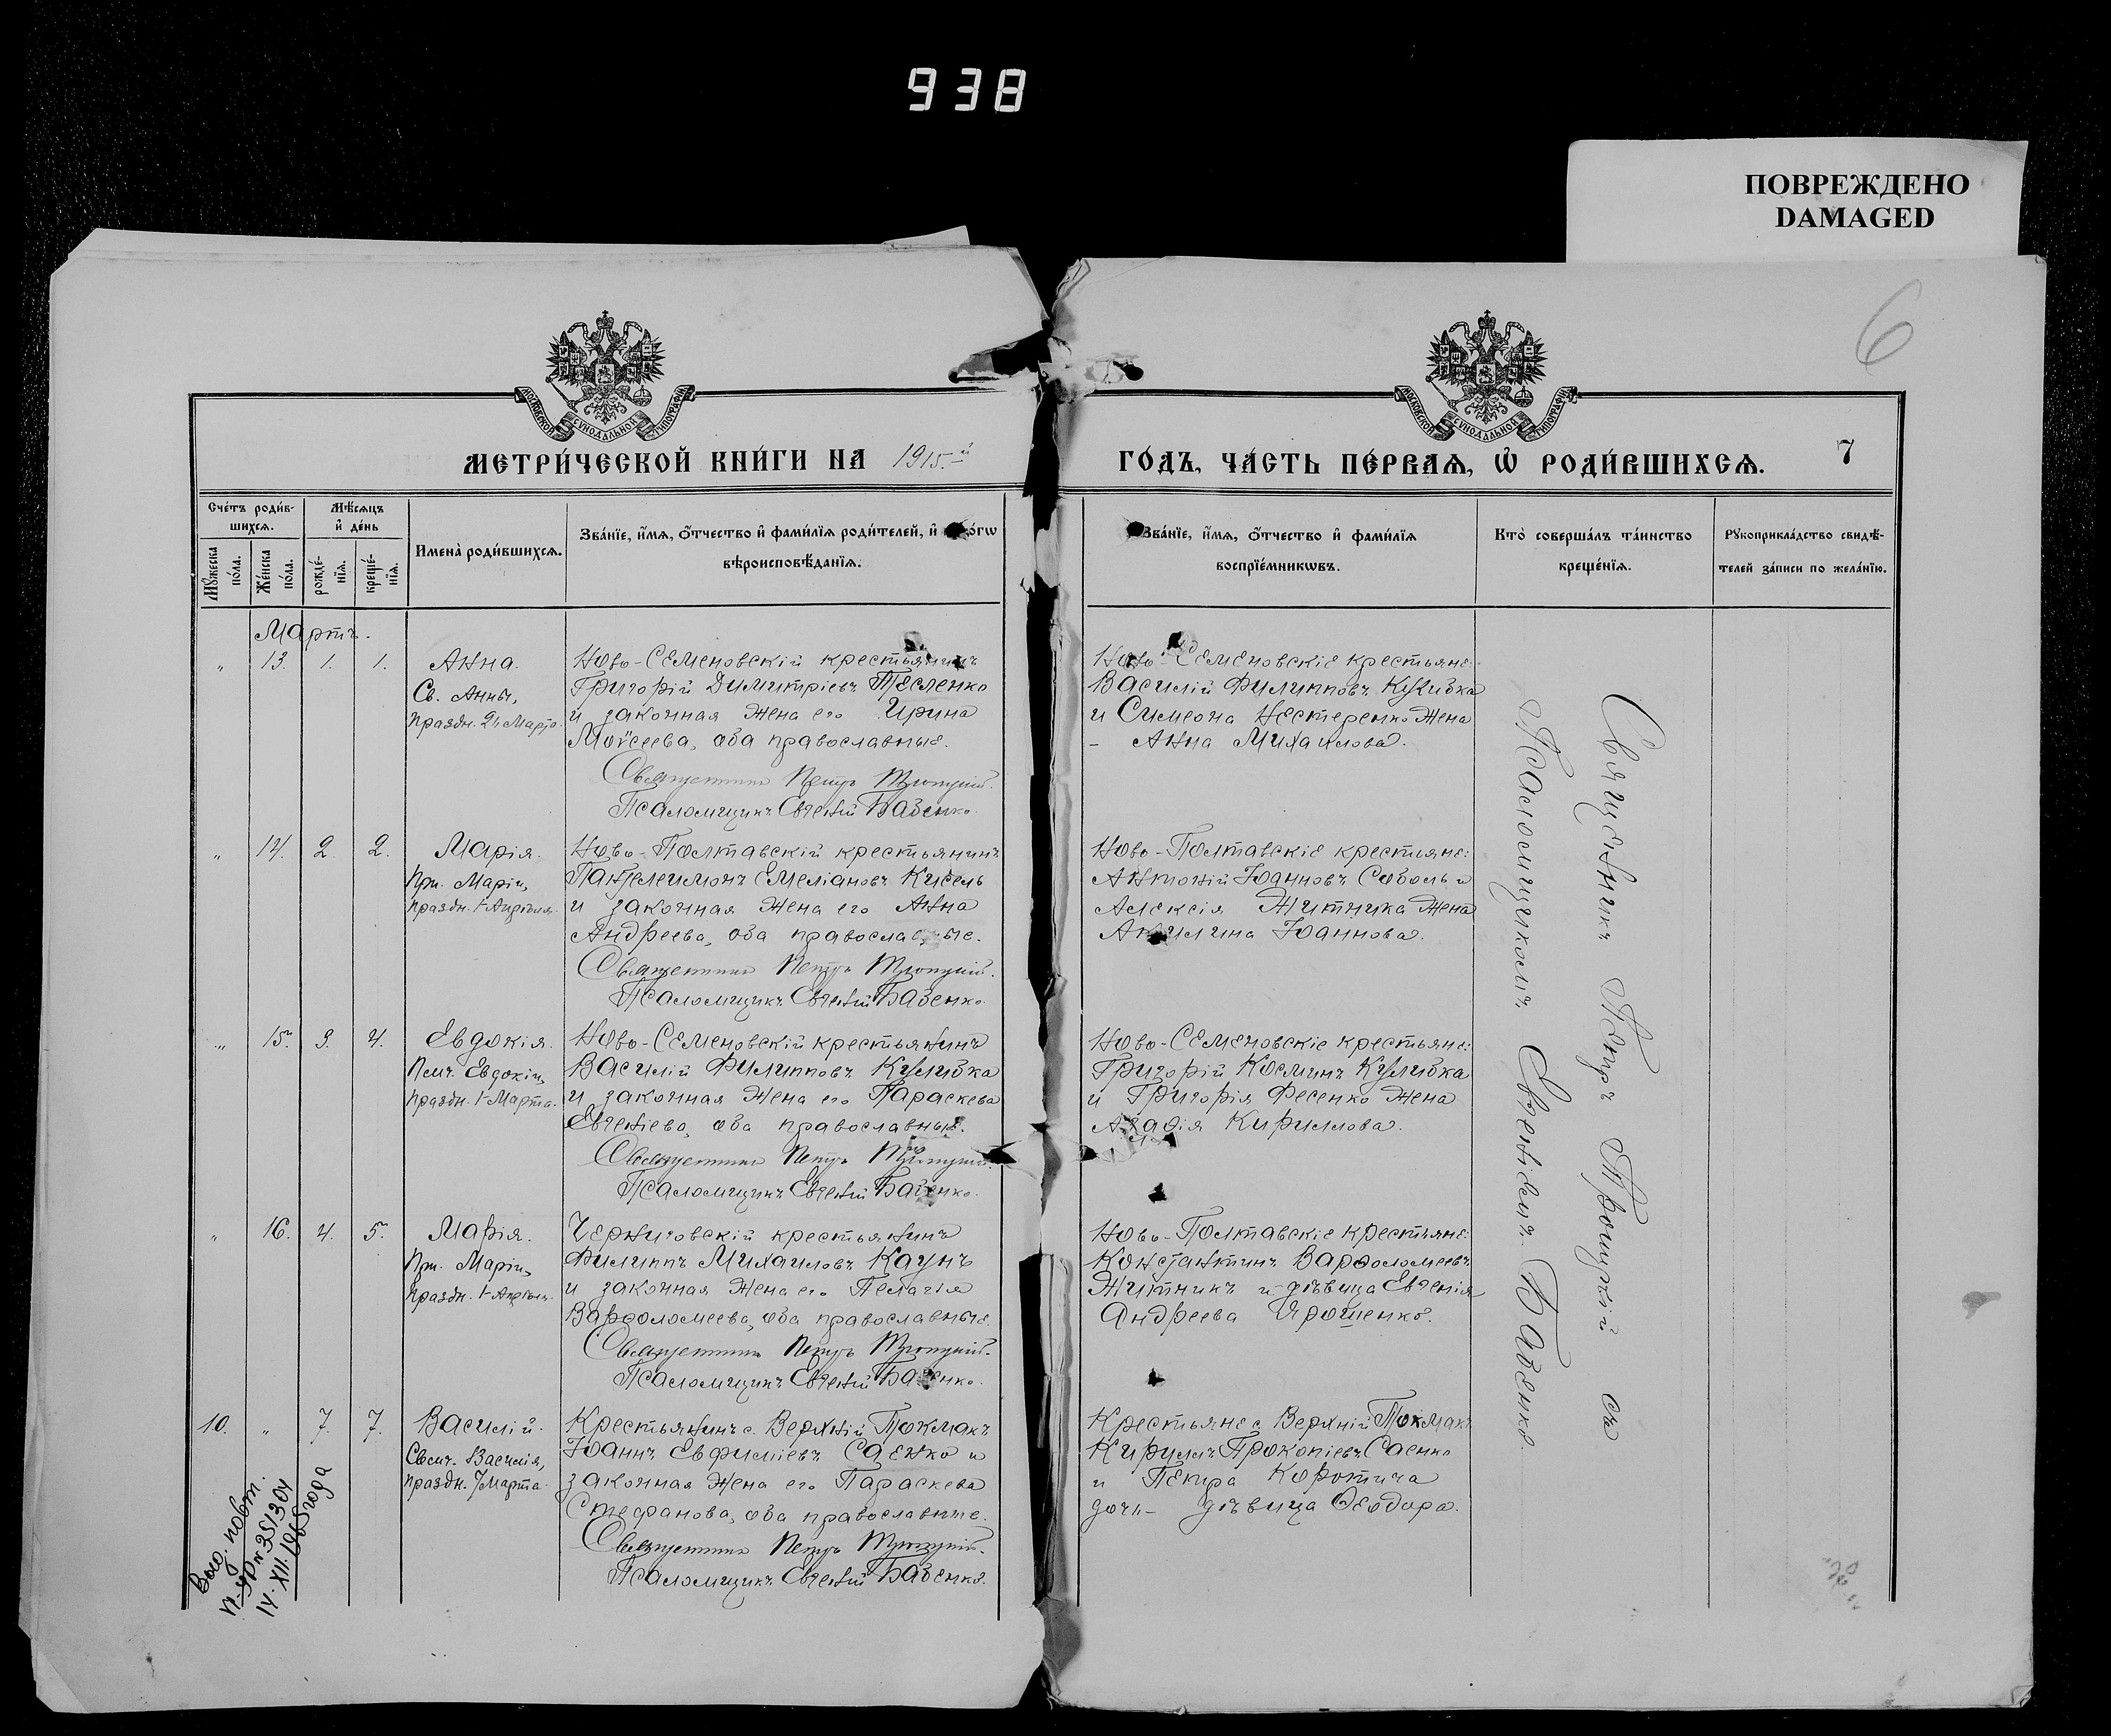 938
ПОВРЕЖДЕНО
DAMAGED
6
МОСКОВСКОЙ СѴНОДАЛЬНОЙ ТИПОГРАФІИ
МОСКОВСКОЙ СѴНОДАЛЬНОЙ ТИПОГРАФІИ
МЕТРИ́ЧЕСКОЙ КНИ́ГИ НА 1915.й
ГО́ДЪ, ЧА́СТЬ ПЕ́РВАѦ, Ѡ҆ РОДИ́ВШИХСѦ.
7
Сче́тъ роди́в-
шихсѧ.
Мꙋ́жеска по́ла.
Же́нска по́ла.
Мѣ́сѧцъ
и҆ де́нь
рожде́-
нїѧ.
креще́-
нїѧ.
И҆мена̀ роди́вшихсѧ.
Зва́нїе, и҆́мѧ, ѻ҆́тчество и҆ фами́лїѧ роди́телей, и҆
вѣроисповѣ́данїѧ.
Зва́нїе, и҆́мѧ, ѻ҆́тчество и҆ фами́лїѧ
воспрїе́мникѡвъ.
Кто̀ соверша́лъ та́инство
креще́нїѧ.
Рꙋкоприкла́дство свидѣ́-
телей за́писи по жела́нїю.
Мартъ.
" 13. 1. 1.
Анна.
Св. Анны,
праздн. Марта
Ново-Семеновскій крестьянинъ
Григорій Димитріевъ Тесленко
и законная жена его Ирина
Моѵсеева, оба православные.
Священникъ Петръ Троицкій.
Псаломщикъ Евгеній Бабенко.
Ново-Семеновскіе крестьяне:
Василій Филипповъ Кулибка
и Симеона Нестеренко жена
- Анна Михаилова.
" 14. 2. 2.
Марія.
Прп. Маріи,
праздн. 1 Апрѣля.
Ново-Полтавскій крестьянинъ
Пантелеимонъ Емеліановъ Кисель
и законная жена его Анна
Андреева, оба православные.
Священникъ Петръ Троицкій.
Псаломщикъ Евгеній Бабенко.
Ново-Полтавскіе крестьяне:
Антоній Іоанновъ Соболь и
Алексія Житника жена
Акилина Іоаннова.
" 15. 3. 4.
Евдокія.
Пмч. Евдокіи,
праздн. 1 Марта.
Ново-Семеновскій крестьянинъ
Василій Филипповъ Кулибка
и законная жена его Параскева
Евгеніева, оба православные.
Священникъ Петръ Троицкій.
Псаломщикъ Евгеній Бабенко.
Ново-Семеновскіе крестьяне:
Григорій Косминъ Кулибка
и Григорія Фесенко жена
Агафія Кириллова.
" 16. 4. 5.
Марія.
Прп. Маріи,
праздн. 1 Апрѣля.
Черниговскій крестьянинъ
Филиппъ Михаиловъ Каунъ
и законная жена его Пелагія
Варѳоломеева, оба православные.
Священникъ Петръ Троицкій.
Псаломщикъ Евгеній Бабенко.
Ново-Полтавскіе крестьяне:
Константинъ Варѳоломеевъ
Житникъ и дѣвица Евгенія
Андреева Ярошенко.
10. " 7. 7.
Василій.
Свсмч. Василія,
праздн. 7 Марта.
Крестьянинъ с. Верхній Токмакъ
Іоаннъ Евфиміевъ Саенко и
законная жена его Параскева
Стефанова, оба православные.
Священникъ Петръ Троицкій.
Псаломщикъ Евгеній Бабенко.
Крестьяне с. Верхній Токмакъ
Кириллъ Прокопіевъ Саенко
и Петра Коротича
дочь - дѣвица Ѳеодора.
Священникъ Петръ Троицкій съ
Псаломщикомъ Евгеніемъ Бабенко.
Выд. повт.
351304
14.XII.1965 года